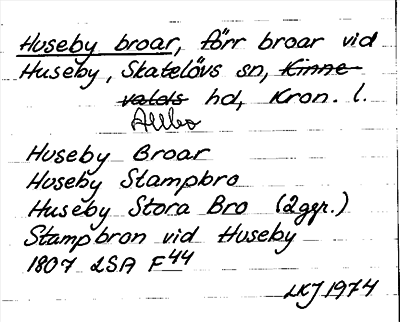 Huseby broar, förr broar vid
Huseby, Skatelövs sn, Kinne-
valds hd, Kron. l.
Allbo
Huseby Broar
Huseby Stampbro
Huseby Stora Bro (2 ggr.)
Stampbron vid Huseby
1807 LSA F44
LKJ 1974